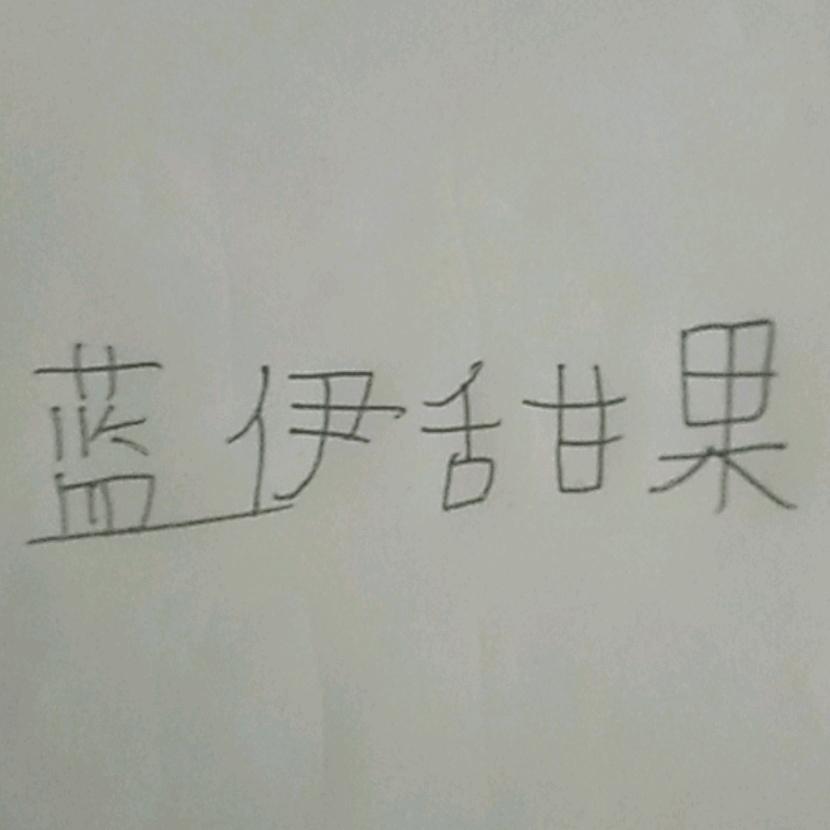 蓝伊甜果